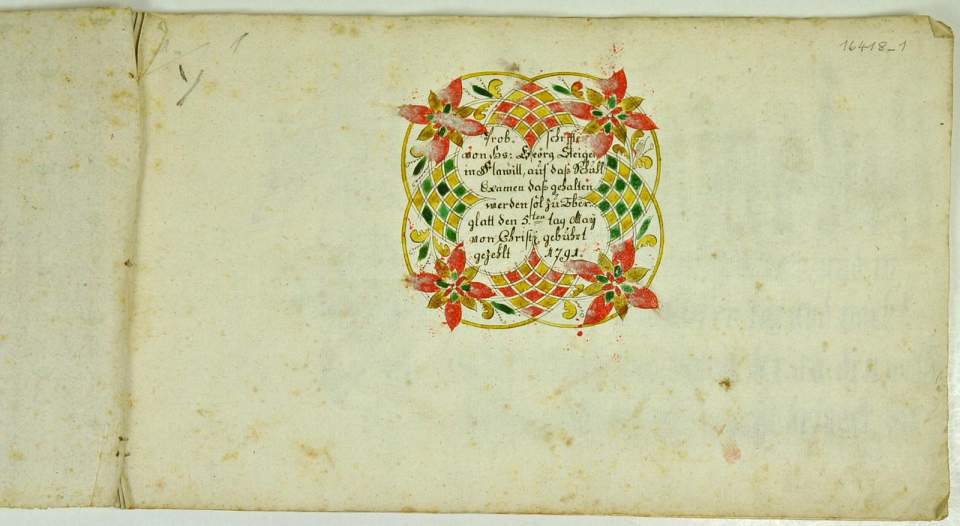 16418_1
Prob. schrifft
von Hs: Georg Steiger
in Flawill, auf daß Schůl
Examen daß gehalten
werden sol zů Ober-
glatt den 5.ten tag Maÿ
von Christj gebůhrt
gezehlt 1791.